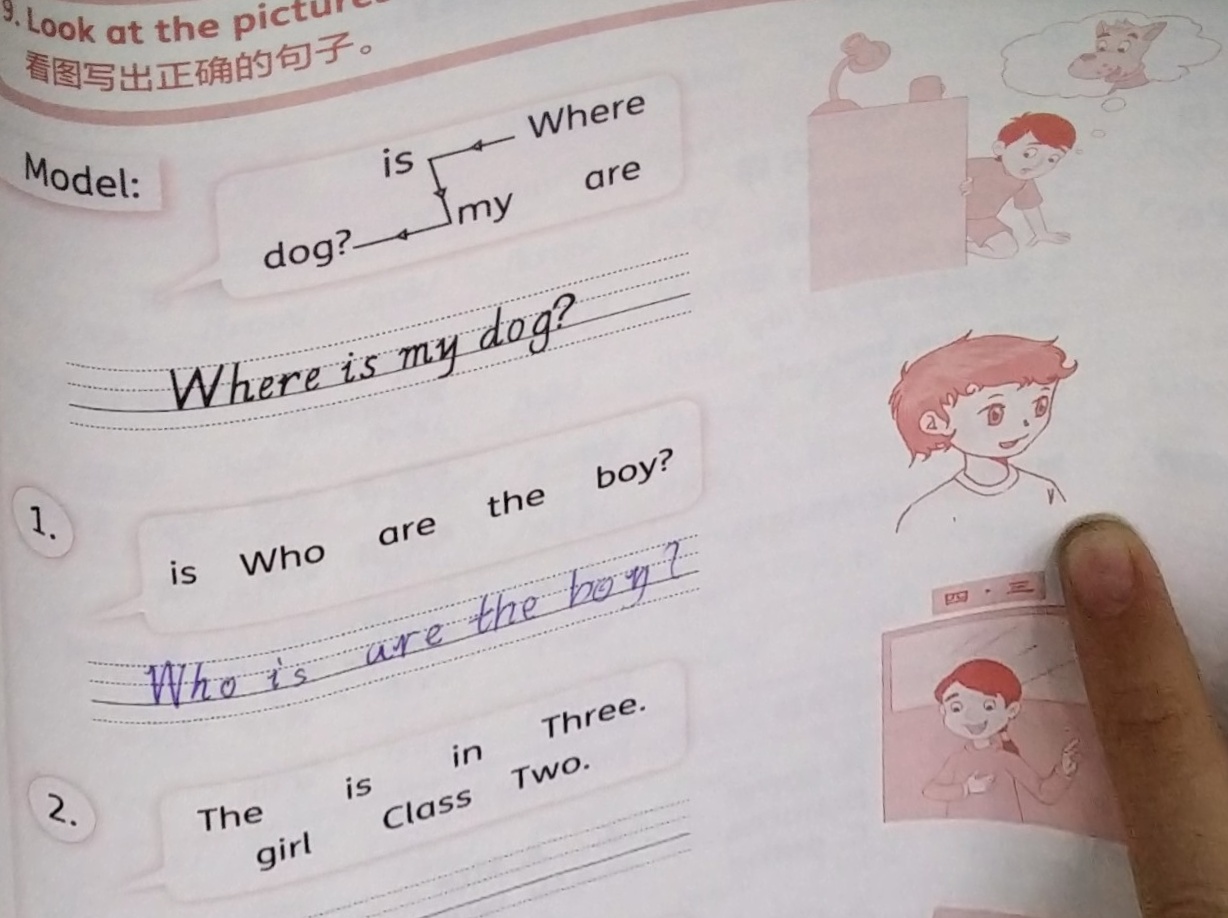 9. Look at the picture
看图写出正确的句子。
Model:
is Where
dog? my are
Where is my dog?
1.
is Who are the boy?
Who is are the boy?
四·三
2.
The is in Three.
girl Class Two.